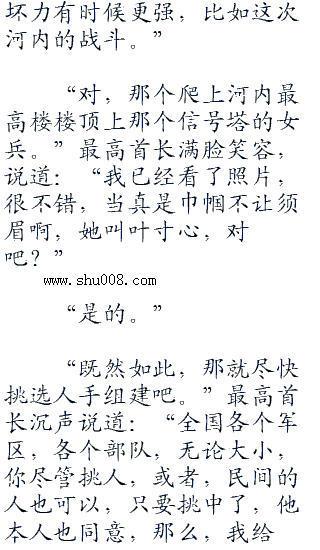 坏力有时候更强，比如这次
河内的战斗。”
“对，那个爬上河内最
高楼楼顶上那个信号塔的女
兵。”最高首长满脸笑容，
说道：“我已经看了照片，
很不错，当真是巾帼不让须
眉啊，她叫叶寸心，对
吧？”
www.shu008.com
“是的。”
“既然如此，那就尽快
挑选人手组建吧。”最高首
长沉声说道：“全国各个军
区，各个部队，无论大小，
你尽管挑人，或者，民间的
人也可以，只要挑中了，他
本人也同意，那么，我给